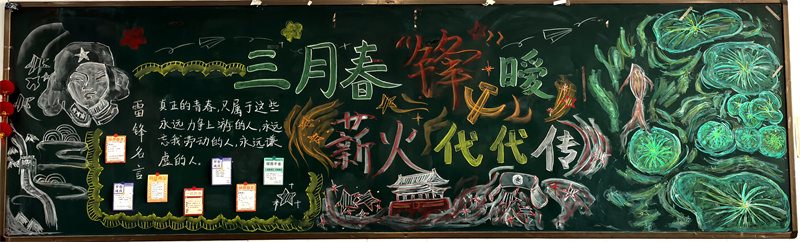 三月春“锋”暖
薪火代代传
雷锋名言
真正的青春,只属于这些
永远力争上游的人,永远
忘我劳动的人,永远谦
虚的人。